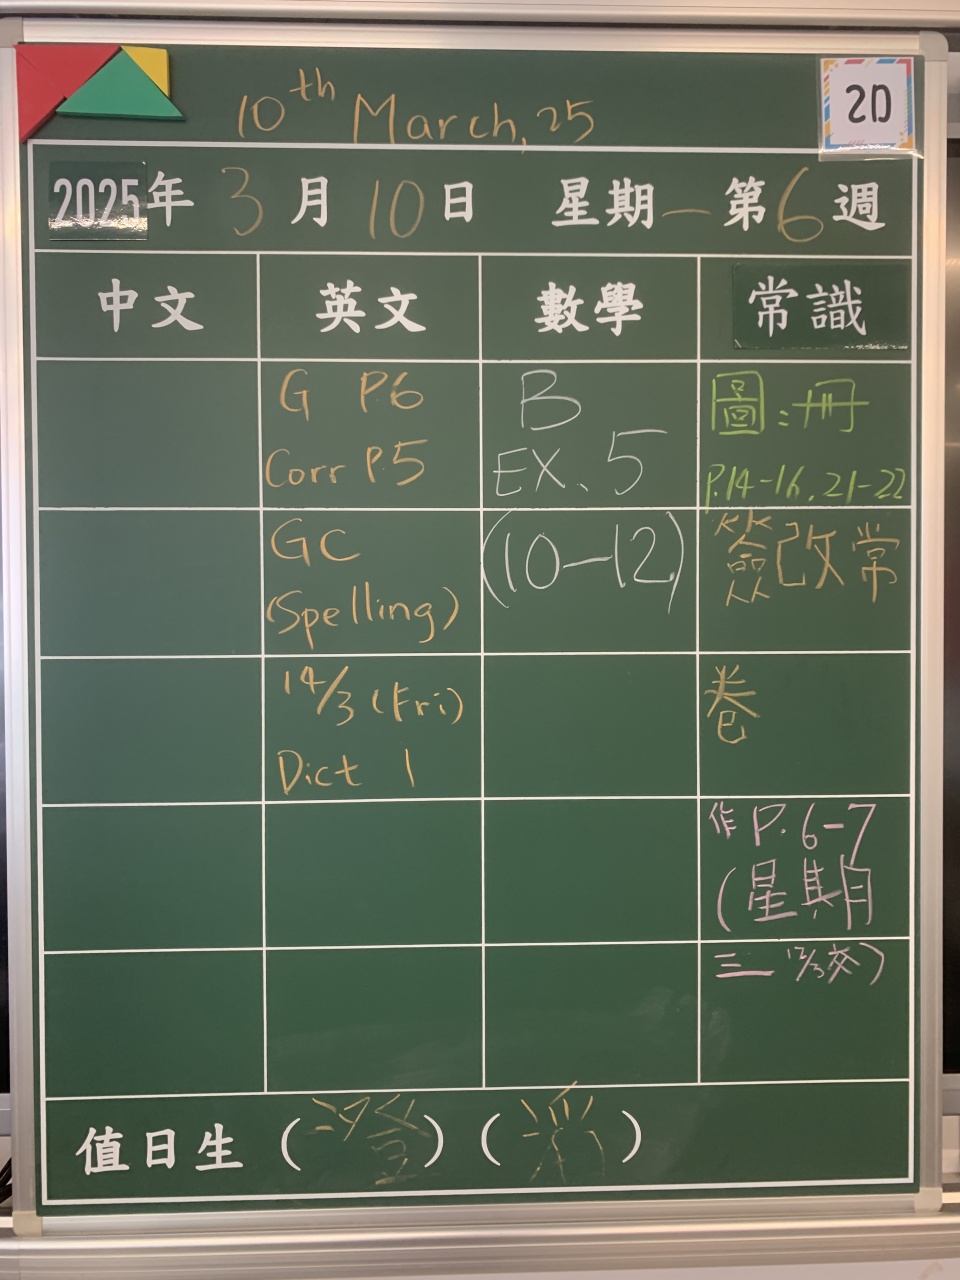 10th March, 25
2D
2025年 3月 10日 星期一 第6週
中文 英文 數學 常識
G P6
Corr P.5
GC
(Spelling)
14/3 (Fri)
Dict 1
B
EX. 5
(10-12)
圖:冊
P.14-16, 21-22
簽改常
卷
作 P. 6-7
(星期
三 12/3交)
值日生 (澄) ( )